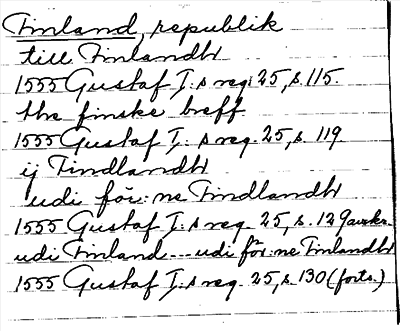 Finland, republik
till Finlandh
1555 Gustaf I:s reg. 25, s. 115.
the finske breff
1555 Gustaf I:s reg. 25, s. 119.
ij Findlandh
udi för:ne Findlandh
1555 Gustaf I:s reg. 25, s. 129
udi Finland --- udi för:ne Finlandh
1555 Gustaf I:s reg. 25, s. 130 (forts.)